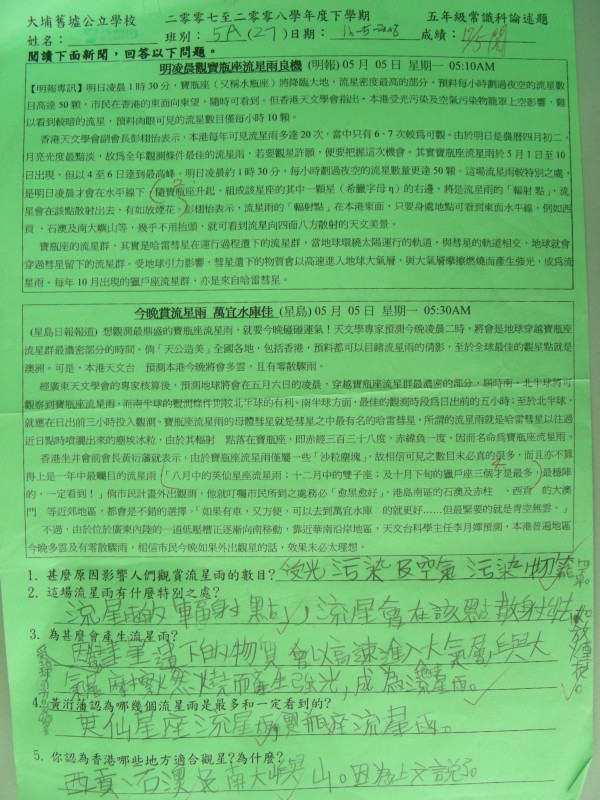 大埔舊墟公立學校 二零零七至二零零八學年度下學期 五年級常識科論述題
姓名： 班別：5A(27) 日期： 成績：
閱讀下面新聞，回答以下問題。
明凌晨觀寶瓶座流星雨良機 (明報) 05 月 05 日 星期一 05:10AM
【明報專訊】明日凌晨 1 時 30 分，寶瓶座（又稱水瓶座）將降臨大地，流星密度最高的部分，預料每小時劃過夜空的流星數
目高達 50 顆，市民在香港的東面向東望，隨時可看到。但香港天文學會指出，本港受光污染及空氣污染物籠罩上空影響，難
以看到較暗的流星，預料肉眼可見的流星數目僅每小時 10 顆。
香港天文學會副會長彭栩怡表示，本港每年可見流星雨多達 20 次，當中只有 6、7 次較為可觀。由於明日是農曆四月初二，
月亮光度最黯淡，故為全年觀測條件最佳的流星雨，若要觀星許願，便要把握這次機會。其實寶瓶座流星雨於 5 月 1 日至 10
日出現，但以 4 至 6 日達到最高峰。明日凌晨約 1 時 30 分，每小時劃過夜空的流星數量更達 50 顆。這場流星雨較特別之處，
是明日凌晨才會在水平線下，隨寶瓶座升起，組成該星座的其中一顆星（希臘字母η）的右邊，將是流星雨的「輻射點」，流
星會在該點散射出去，有如放煙花。彭栩怡表示，流星雨的「輻射點」在本港東面，只要身處地點可看到東面水平線，例如西
貢、石澳及南大嶼山等，幾乎不用抬頭，就可看到流星向四面八方散射的天文美景。
寶瓶座的流星群，其實是哈雷彗星在運行過程遺下的流星群，當地球環繞太陽運行的軌道，與彗星的軌道相交，地球就會
穿過彗星留下的流星群。受地球引力影響，彗星遺下的物質會以高速進入地球大氣層，與大氣層摩擦燃燒而產生強光，成為流
星雨。每年 10 月出現的獵戶座流星群，亦是來自哈雷彗星。
今晚賞流星雨 萬宜水庫佳 (星島) 05 月 05 日 星期一 05:30AM
(星島日報報道) 想觀測最鼎盛的寶瓶座流星雨，就要今晚碰碰運氣！天文學專家預測今晚凌晨二時，將會是地球穿越寶瓶座
流星群最濃密部分的時間。倘「天公造美」全國各地，包括香港，預料都可以目睹流星雨的倩影，至於全球最佳的觀星點就是
澳洲。可是，本港天文台 預測本港今晚將會多雲，且有零散驟雨。
經廣東天文學會的專家核算後，預測地球將會在五月六日的凌晨，穿越寶瓶座流星群最濃密的部分，屆時南、北半球將可
觀察到寶瓶座流星雨，而南半球的觀測條件則較北半球的有利。南半球方面，最佳的觀測時段為日出前的五小時；至於北半球，
就應在日出前三小時投入觀測。寶瓶座流星雨的母體彗星就是彗星之中最有名的哈雷彗星，所謂的流星雨就是哈雷彗星以往過
近日點時噴灑出來的塵埃冰粒，由於其輻射 點落在寶瓶座，即赤經三百三十八度，赤緯負一度，因而名命為寶瓶座流星雨。
香港坐井會前會長黃衍藩就表示，由於寶瓶座流星雨僅屬一些「沙粒塵塊」，故相信可見之數目未必真的很多，而且亦不算
得上是一年中最矚目的流星雨，「八月中的英仙星座流星雨；十二月中的雙子座；及十月下旬的獵戶座三個才是最多，最穩陣
的，一定看到！」倘市民計畫外出觀測，他就叮囑市民所到之處務必「愈黑愈好」，港島南區的石澳及赤柱 ，西貢 的大澳
門 等近郊地區，都會是不錯的選擇，「如果有車，又方便，可以去到萬宜水庫 的就更好……但最緊要的就是青空無雲。」
不過，由於位於廣東內陸的一道低壓槽正逐漸向南移動，靠近華南沿岸地區，天文台科學主任李月嬋預測，本港普遍地區
今晚多雲及有零散驟雨，相信市民今晚如果外出觀星的話，效果未必太理想。
1. 甚麼原因影響人們觀賞流星雨的數目？受光污染及空氣污染物籠罩。
2. 這場流星雨有什麼特別之處？
流星雨的輻射點，流星會在該點散射出去如放煙花。
3. 為甚麼會產生流星雨？
因彗星遺下的物質會以高速進入大氣層，與大
氣層摩擦燃燒而產生強光，成為流星雨。
4. 黃衍藩認為哪幾個流星雨是最多和一定看到的？
英仙星座流星雨寶瓶座流星雨。
5. 你認為香港哪些地方適合觀星？為什麼？
西貢、石澳及南大嶼山。因為上文說了。